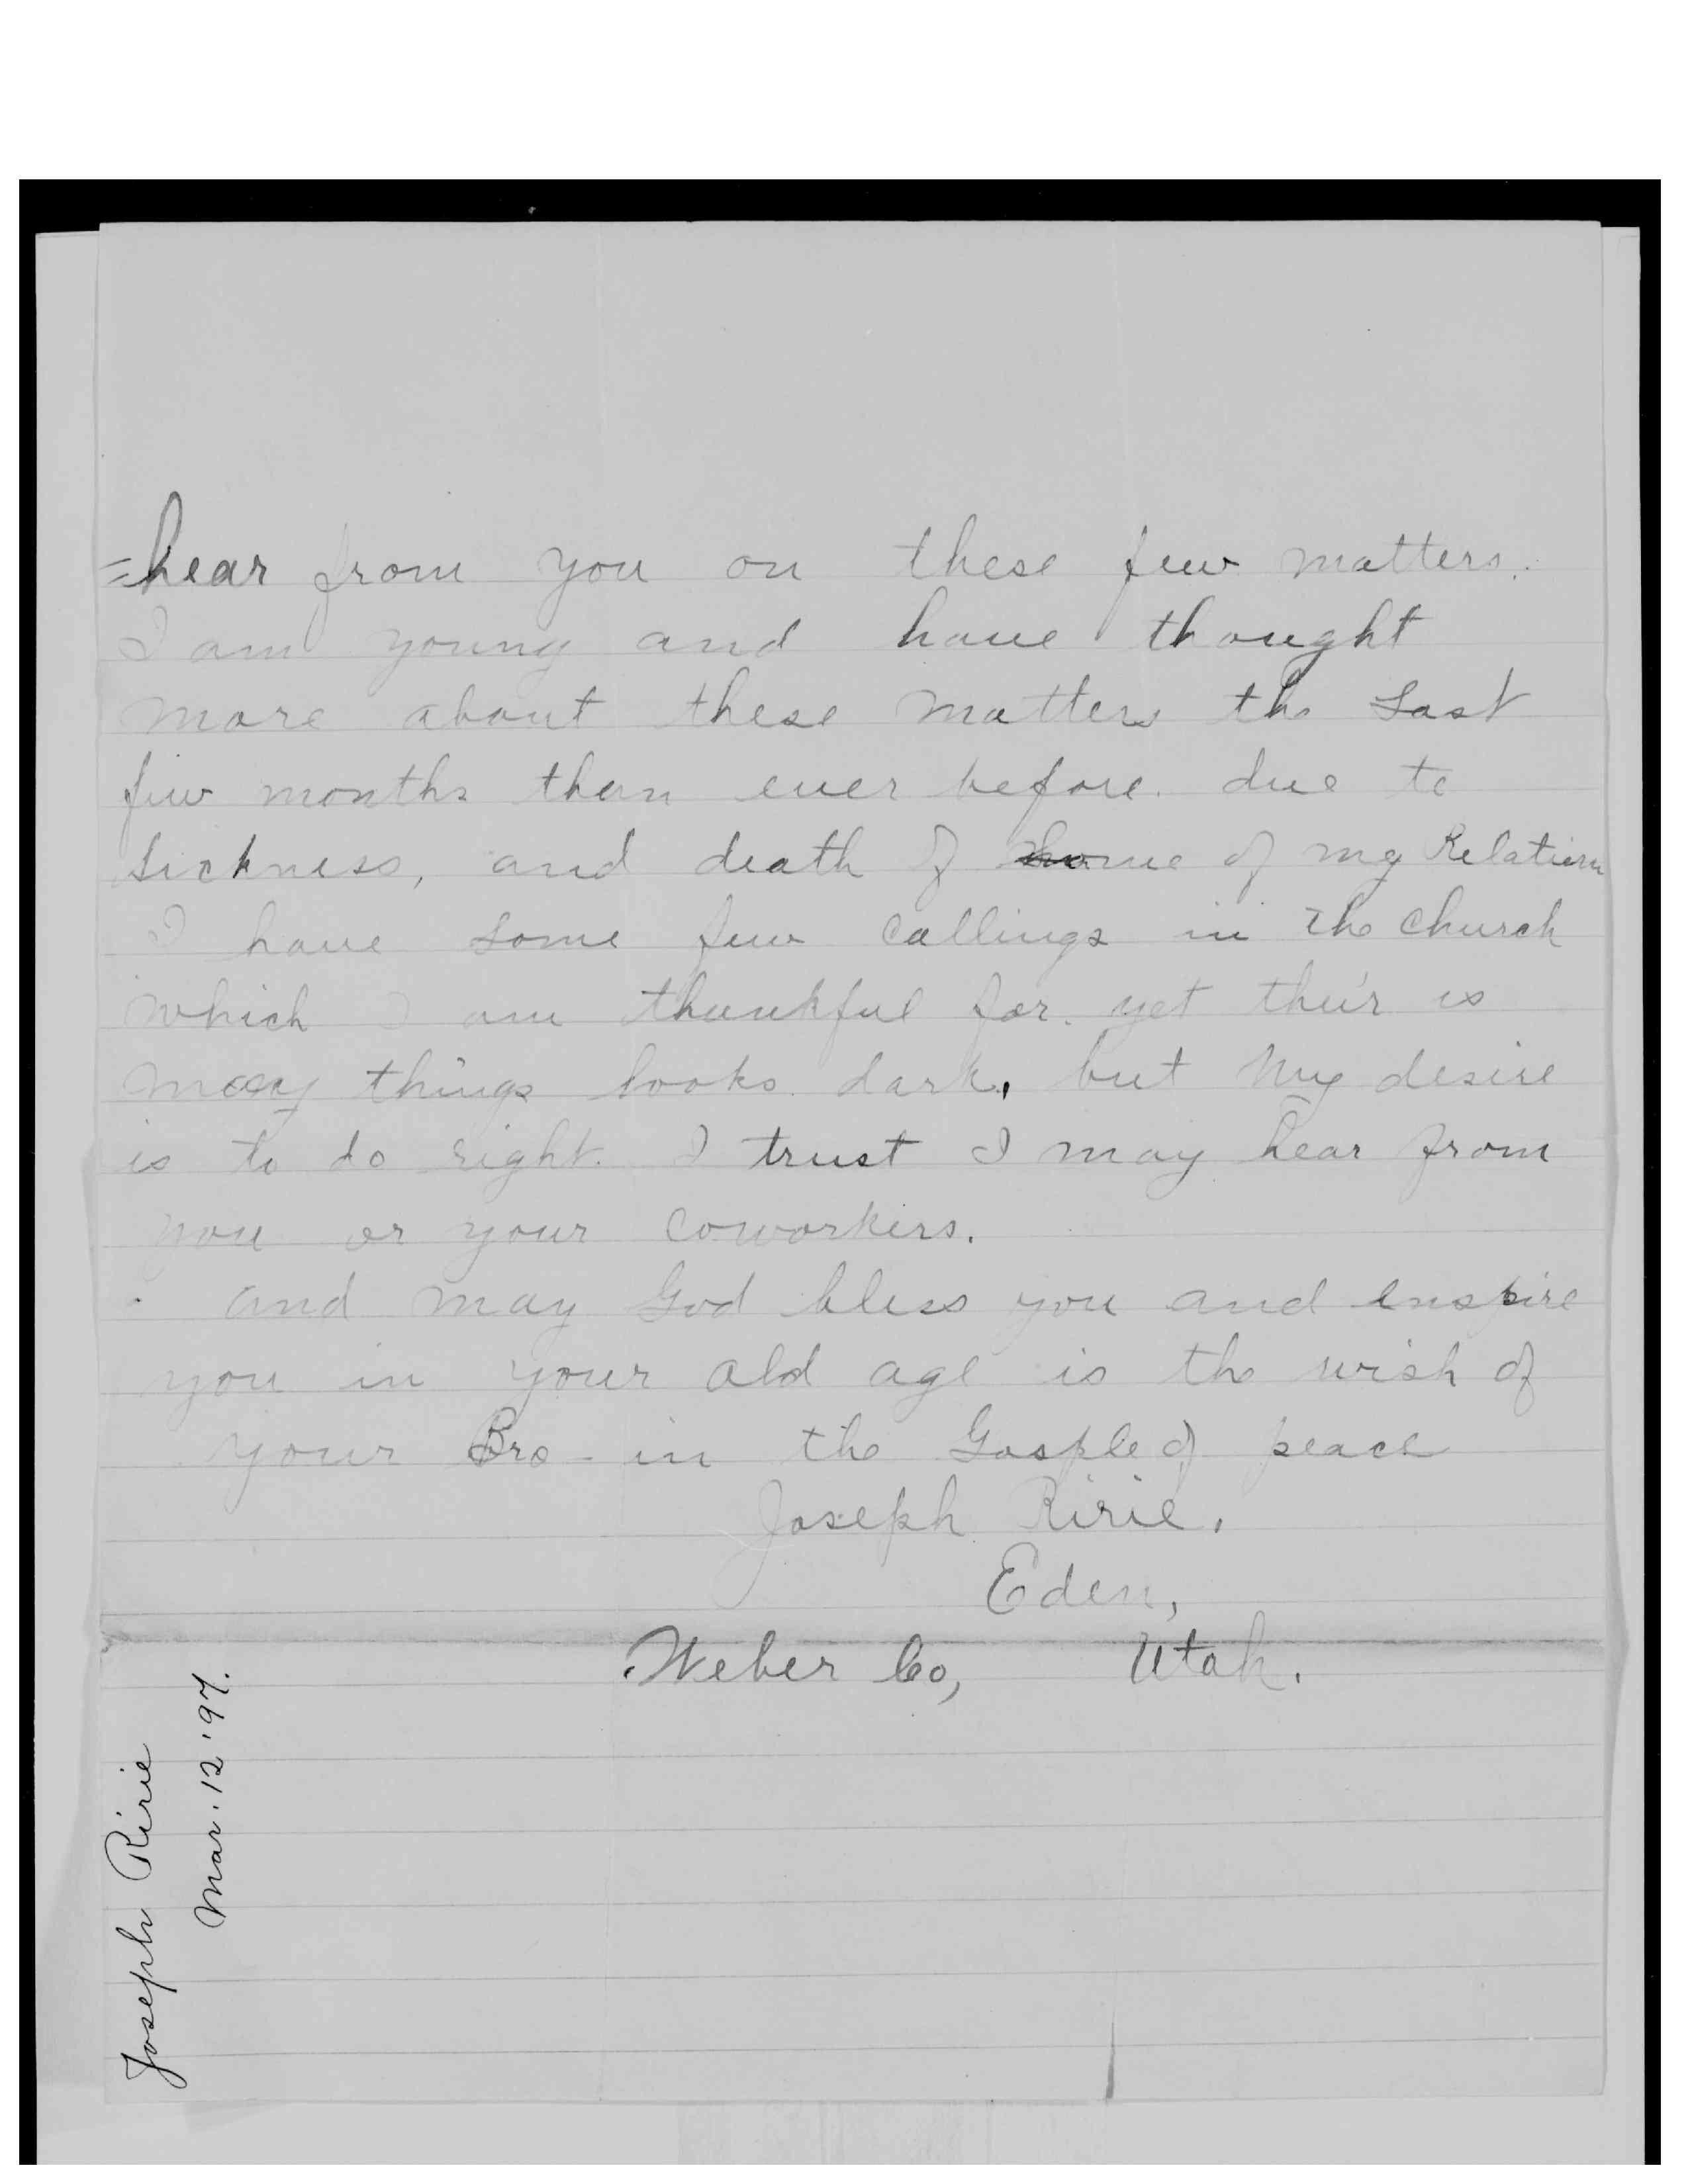 =hear from you on these few matters.
I am young and have thought
more about these matters the Last
few months than ever before. due to
Sickness, and death of some of my Relation
I have some few callings in the Church
which I am thankful for. yet their is
many things looks dark, but My desire
is to do right. I trust I may hear from
you or your coworkers.
and may God bless you and enspire
you in your old age is the wish of
your Bro - in the Gosple of peace
Joseph Ririe.
Eden,
Weber Co, Utah.
Joseph Ririe
Mar. 12 '97.